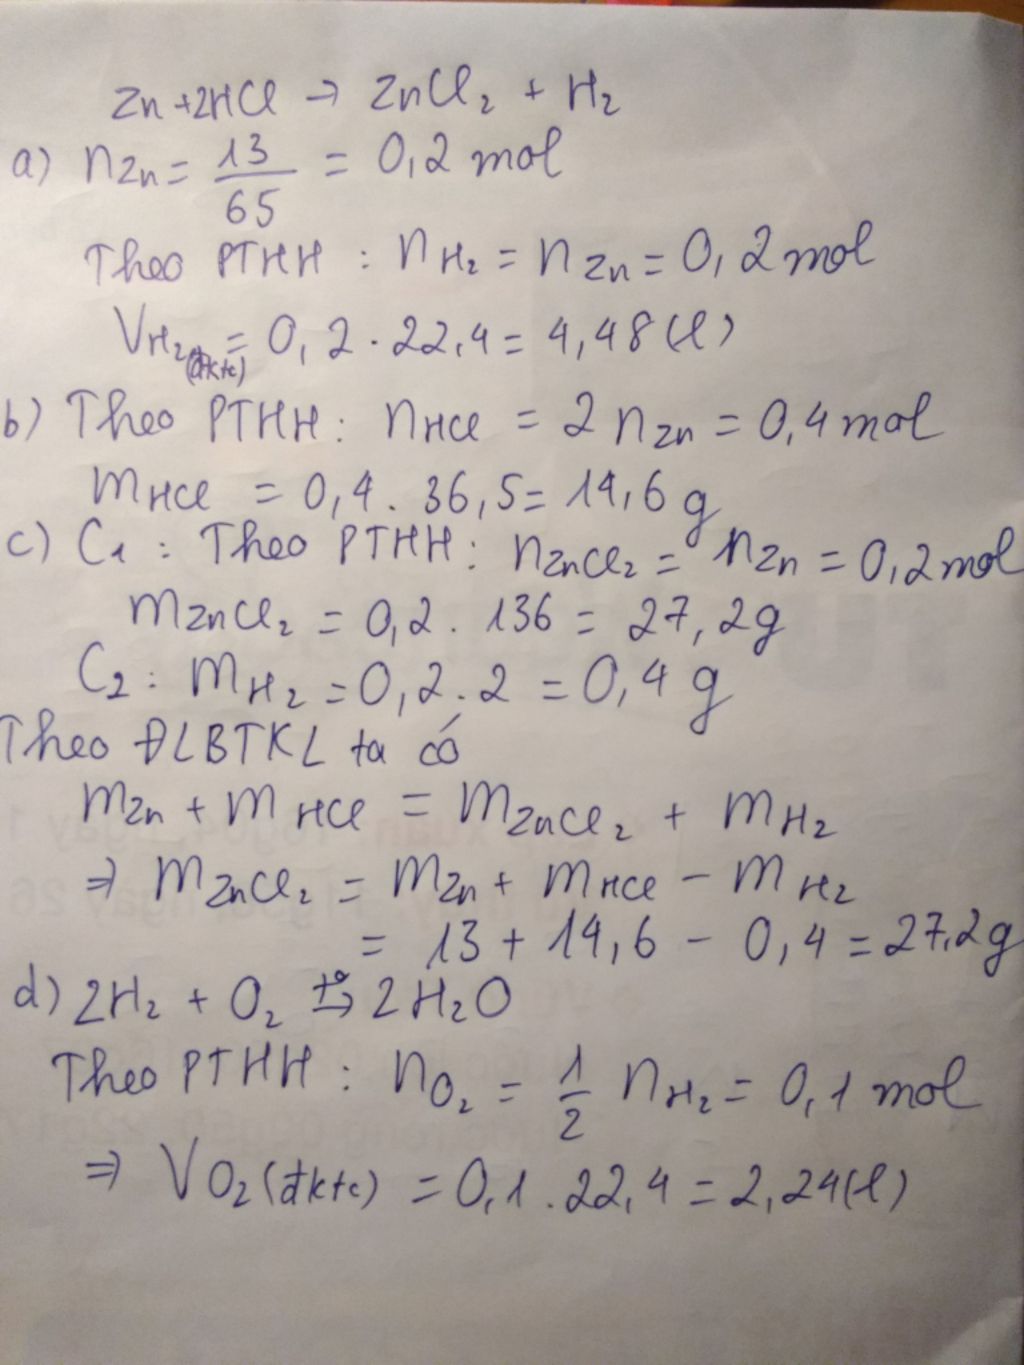 Zn + 2HCl → ZnCl₂ + H₂
a) nZn = 13/65 = 0,2 mol
Theo PTHH : nH₂ = nZn = 0,2 mol
VH₂(đktc) = 0,2 . 22,4 = 4,48 (l)
b) Theo PTHH : nHCl = 2 nZn = 0,4 mol
mHCl = 0,4 . 36,5 = 14,6 g
c) C1 : Theo PTHH : nZnCl₂ = nZn = 0,2 mol
mZnCl₂ = 0,2 . 136 = 27,2g
C2 : mH₂ = 0,2 . 2 = 0,4 g
Theo ĐLBTKL ta có
mZn + mHCl = mZnCl₂ + mH₂
⇒ mZnCl₂ = mZn + mHCl - mH₂
= 13 + 14,6 - 0,4 = 27,2g
d) 2H₂ + O₂ t°→ 2H₂O
Theo PTHH : nO₂ = 1/2 nH₂ = 0,1 mol
⇒ VO₂(đktc) = 0,1 . 22,4 = 2,24 (l)